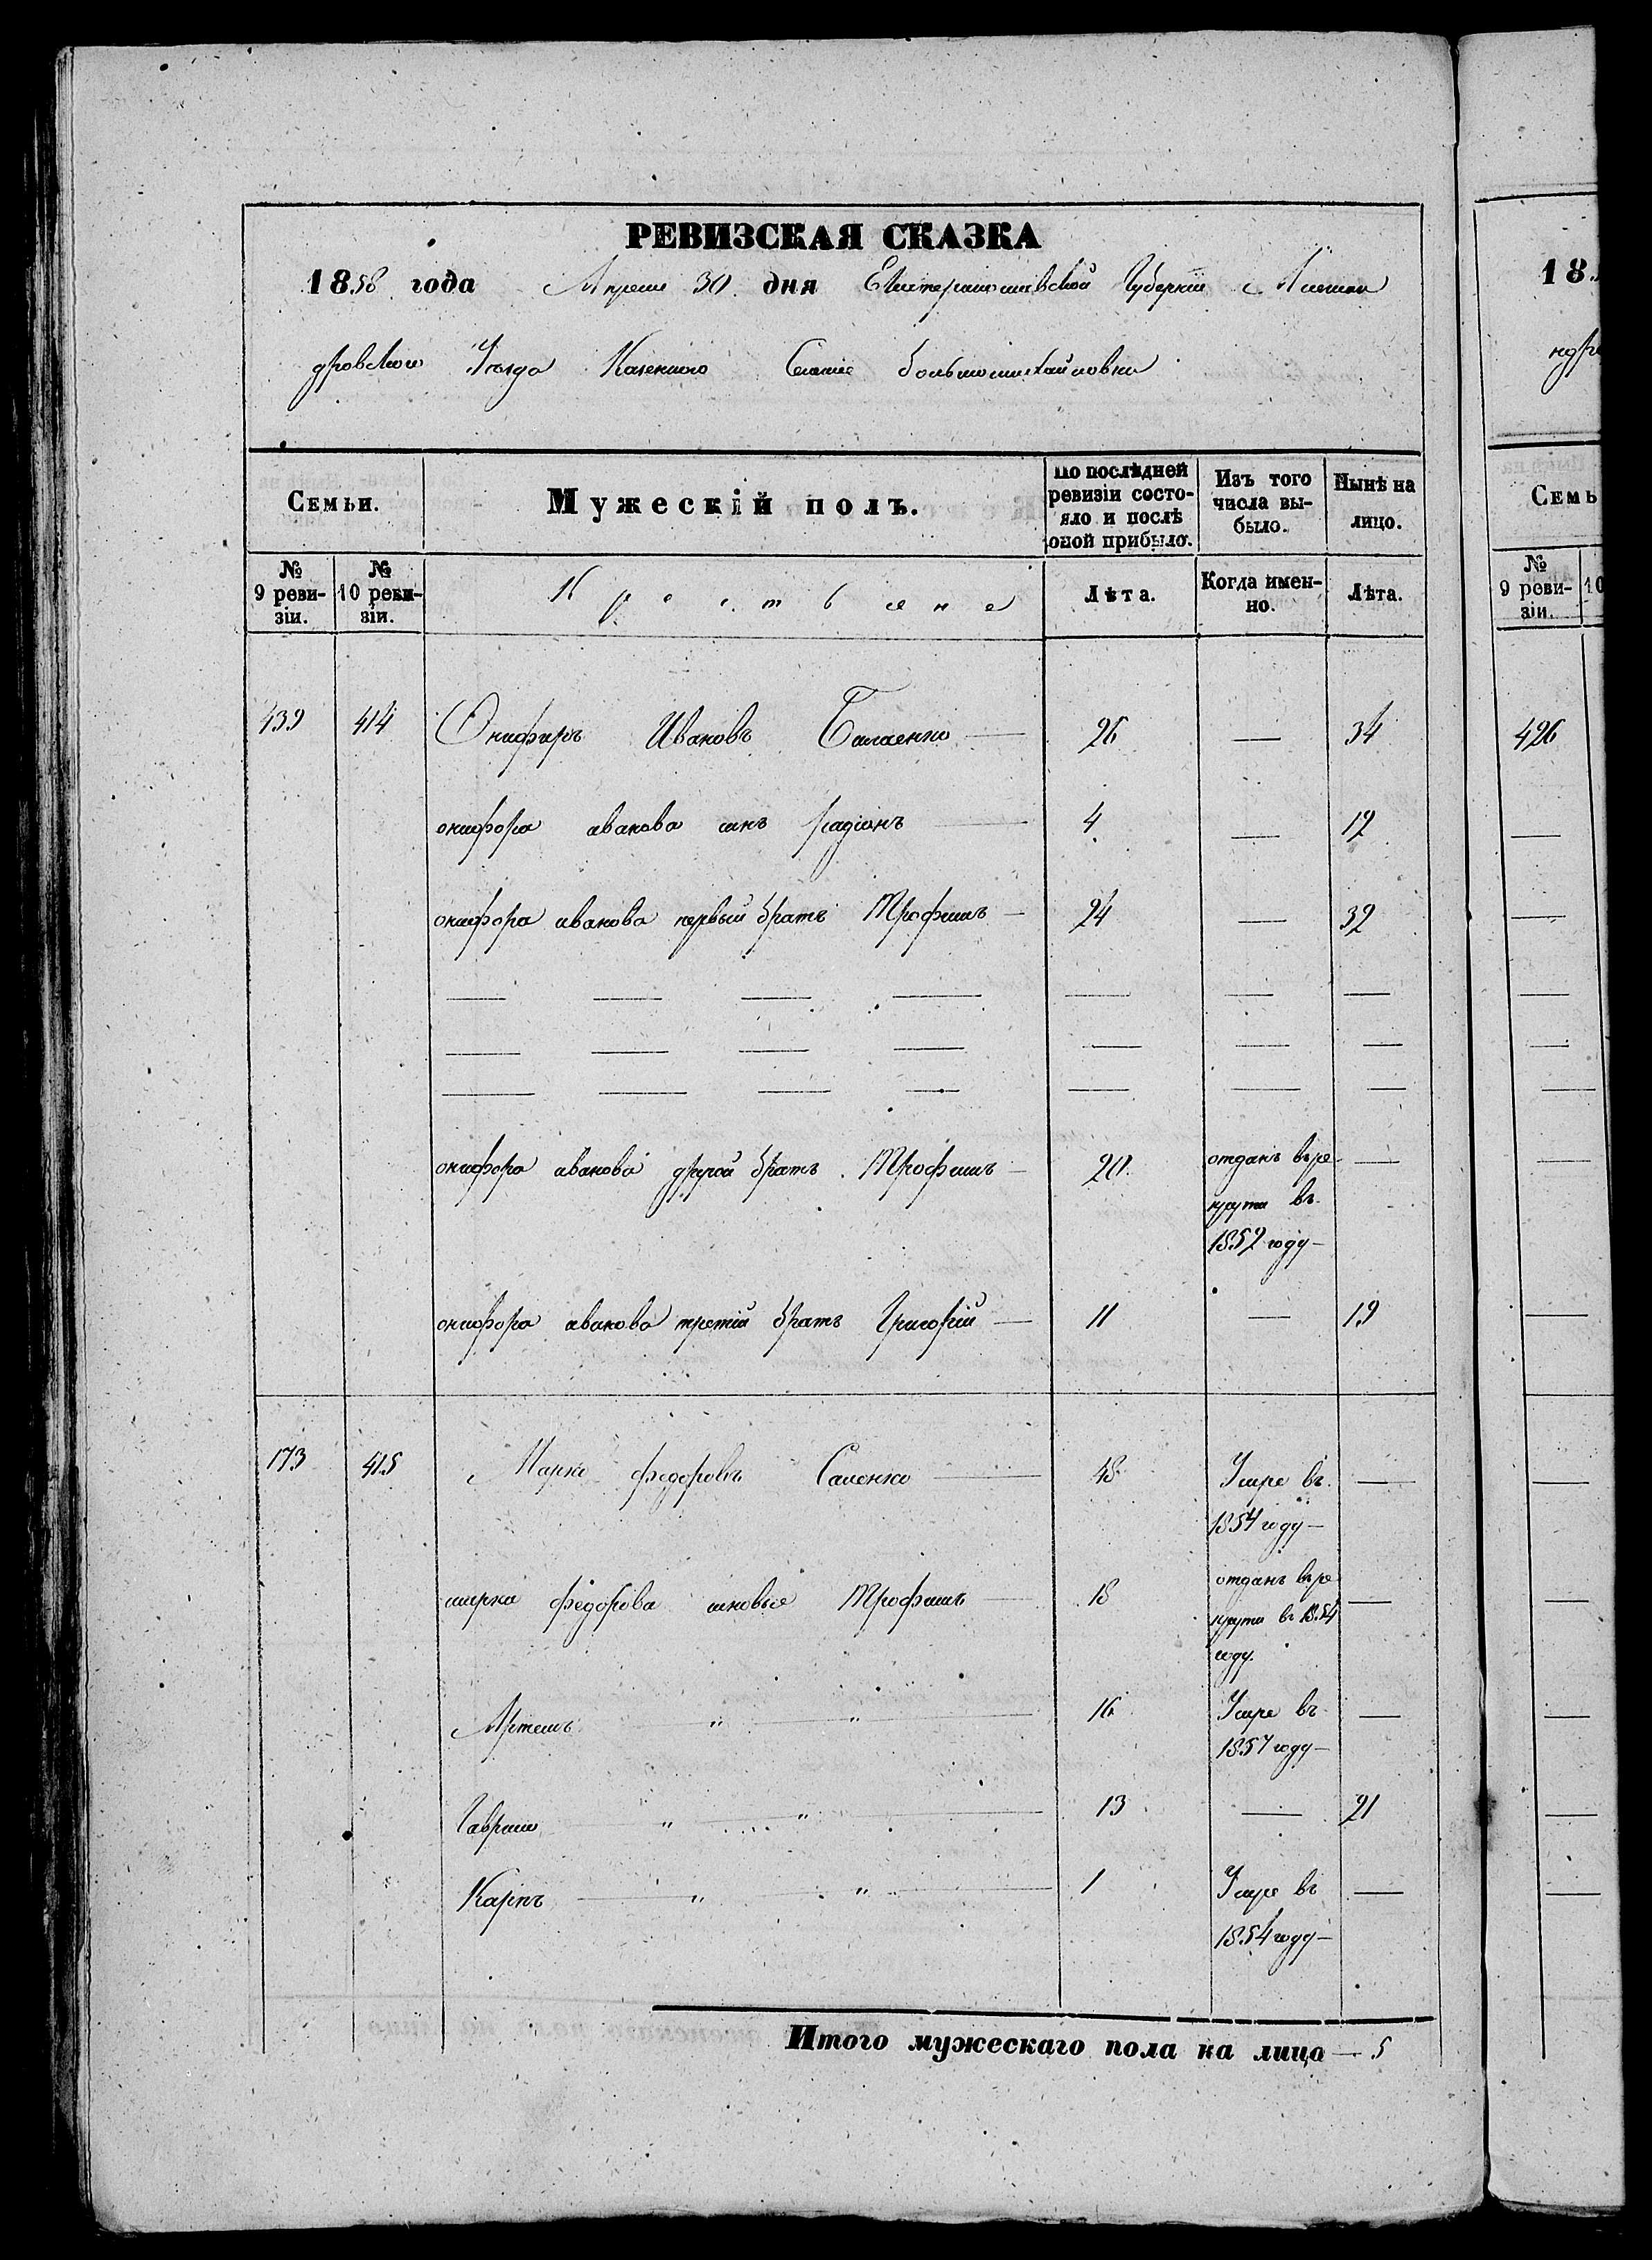 РЕВИЗСКАЯ СКАЗКА
1858 года Апреля 30 дня Екатеринославской Губернии Алексан
дровского Уезда Казенного Селение Большомихайловки
Семьи. Мужескій полъ. По послѣдней ревизіи состо-яло и послѣ оной прибыло. Изъ того числа вы-было. Нынѣ на лицо.
№ 9 реви-зіи. № 10 реви-зіи. Крестьяне Лѣта. Когда имен-но. Лѣта.
439 414 Онифиръ Ивановъ 26 — 34
онифора иванова синъ радіонъ 4 — 12
онифора иванова первый братъ Трофимъ — 24 — 32
онифора иванова другой братъ Трофимъ — 20 отданъ въре —
круты въ
1852 году —
онифора иванова третій братъ Григорій — 11 — 19
173 415 Марко федоровъ 48 Умре въ —
1854 году —
марка федорова сновье Трофимъ — 18 отданъ въре —
круты в 1854
году.
Артемъ " " 16 Умре въ —
1857 году —
Гаврило " " 13 — 21
Карпъ " " 1 Умре въ —
1854 году —
Итого мужескаго пола на лицо — 5
18
ндро
Семь
№ 9 реви-зіи. 10
426